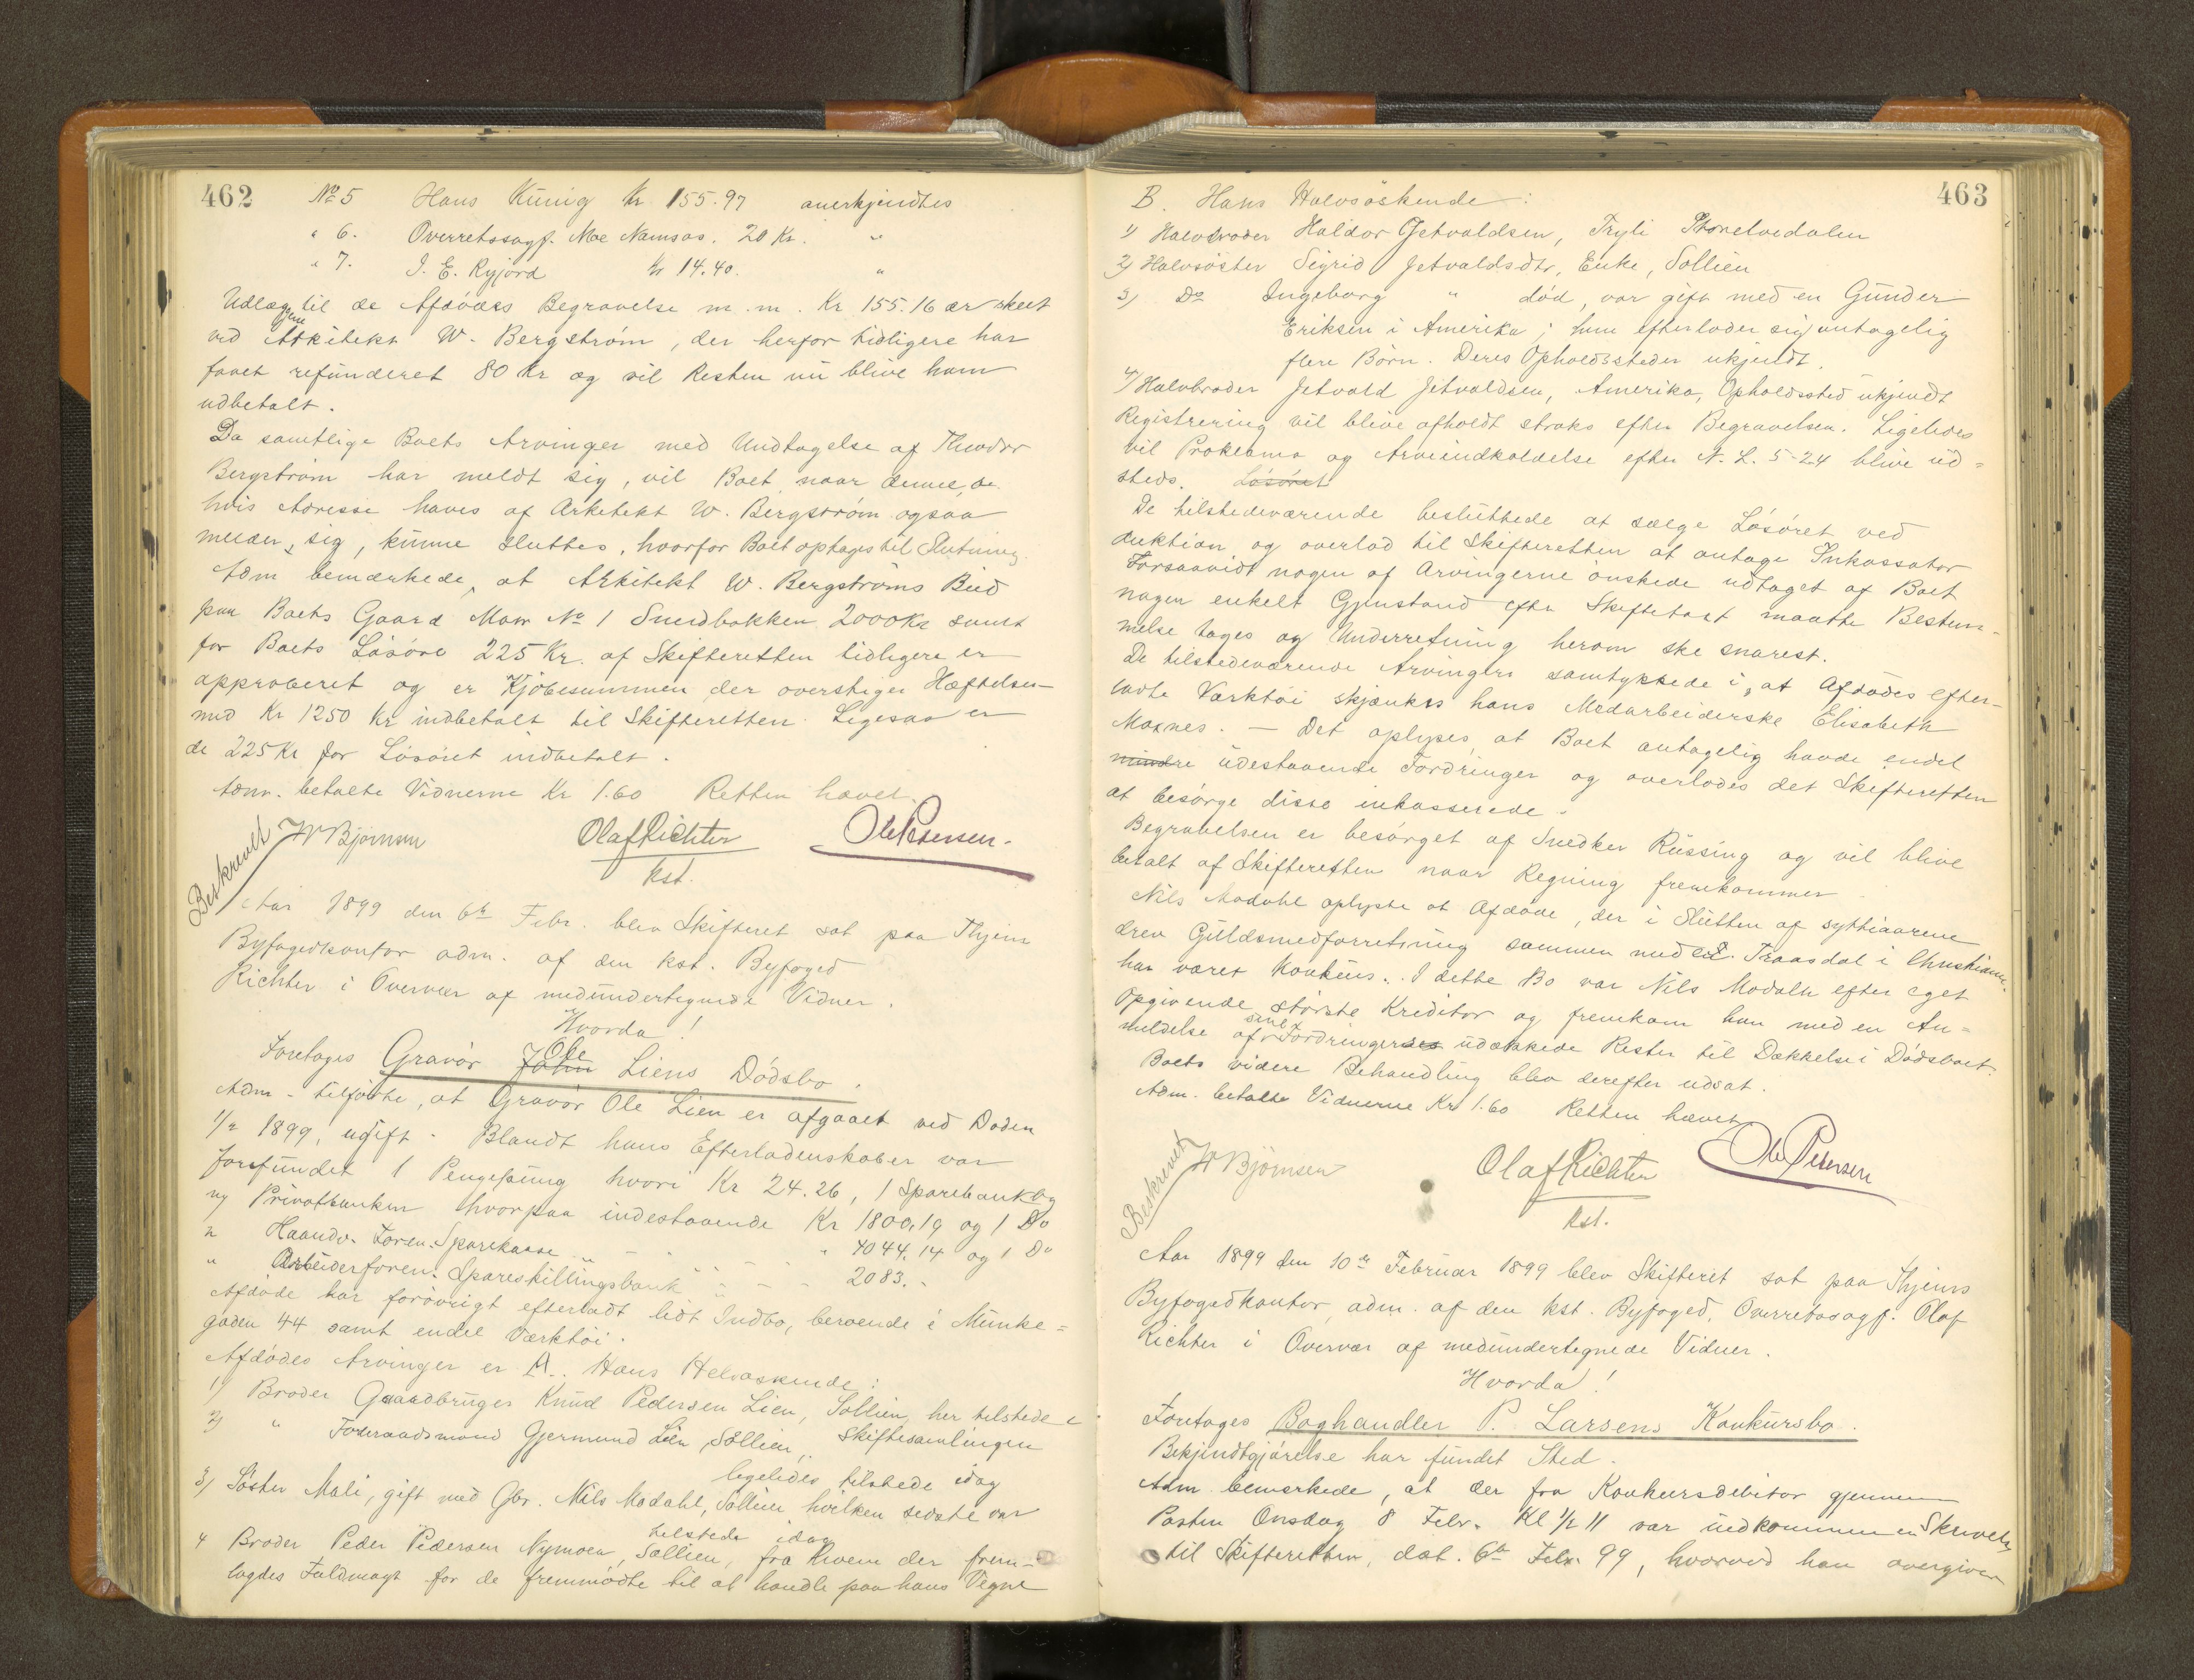 462
No 5 Hans Künig Kr 155.97 anerkjendtes
" 6. Overretssagf. Moe Namsos. 20 Kr. "
" 7. I. E. Ryjord kr 14.40. "
Udlæggene til de Afdødes Begravelse m.m. Kr 155.16 er skeet
ved Arkitekt W. Bergstrøm, der herfor tidligere har
faaet refunderet 80 Kr og vil Resten nu blive ham
udbetalt.
Da samtlige Boets Arvinger med Undtagelse af Theodor
Bergstrøm har meldt sig, vil Boet, naar denne,
hvis Adresse haves af Arkitekt W. Bergstrøm ogsaa
melder sig, kunne sluttes, hvorfor Boet optages til Slutning
Adm bemærkede, at Arkitekt W. Bergstrøms Bud
paa Boets Gaard Matr No 1 Smedbakken 2000 Kr samt
for Boets Løsøre 225 Kr. af Skifteretten tidligere er
approberet og er Kjøbesummen der overstiger Hæftelser
med Kr 1250 Kr indbetalt til Skifteretten. Ligesaa er
de 225 Kr for Løsøret indbetalt.
Adm. betalte Vidnerne Kr 1.60 Retten hævet.
Beskrevet
W Bjørnsen Olaf Richter Ole Petersen.
kst.
Aar 1899 den 6te Febr. blev Skifteret sat paa Thjems
Byfogedkontor adm. af den kst. Byfoged
Richter i Overvær af medundertegnede Vidner.
Hvorda!
Foretoges Gravør John Ole Liens Dødsbo.
Adm. tilførte, at Gravør Ole Lien er afgaaet ved Døden
1/2 1899, ugift. Blandt hans Efterladenskaber var
forefundet 1 Pengepung hvori Kr 24.26, 1 Sparebankbog
ny Privatbanken hvorpaa indestaaende Kr 1800.19 og 1 Do
" Haandv. Foren. Sparekasse " - " " 4044.14 og 1 Do
" Arbeiderforen. Spareskillingsbank " " - - 2083. -
Afdøde har forøvrigt efterladt lidt Indbo, beroende i Munke=
gaden 44 samt endel Værktøi.
Afdødes Arvinger er A. Hans Helsøskende:
1) Broder Gaardbruger Knud Pedersen Lien, Sollien, her tilstede i
2) " Foderaadsmand Gjermund Lien Sollien, Skiftesamlingen
ligeledes tilstede idag
3) Søster Mali, gift med Gbr. Nils Modahl, Sollien hvilken sidste var
tilstede idag
4 Broder Peder Pedersen Nymoen, Sollien, fra hvem der frem-
lagdes Fuldmagt for de fremmødte til at handle paa hans Vegne
463
B. Hans Halvsøskende:
1) Halvbroder Haldor Jetvaldsen, Tryli
2) Halvsøster Sigrid Jetvaldsdtr, Enke, Sollien
3) Do Ingeborg " død, var gift med en Gunder
Eriksen i Amerika; hun efterlader sig antagelig
flere Børn. Deres Opholdssteder ukjendt.
4) Halvbroder Jetvald Jetvaldsen, Amerika, Opholdssted ukjendt
Registrering vil blive afholdt straks efter Begravelsen. Ligeledes
vil Proklama og Arveindkaldelse efter N. L. 5-2-4 blive ud=
stedt. Løsøret
De tilstedeværende besluttede at sælge Løsøret ved
Auktion, og overlod til Skifteretten at antage Inkassator
Forsaavidt nogen af Arvingerne ønskede udtaget af Boet
nogen enkelt Gjenstand efter Skiftetaxt maatte Bestem-
melse tages og Underretning herom ske snarest.
De tilstedeværende Arvinger samtykkede i, at Afdødes efter-
ladte Værktøi skjænkes hans Medarbeiderske Elisabeth
Moxnes. - Det oplyses at Boet antagelig havde endel
mindre udestaaende Fordringer og overlodes det Skifteretten
at besørge disse inkasserede.
Begravelsen er besørget af Snedker Rüssing og vil blive
betalt af Skifteretten naar Regning fremkommer
Nils Modahl oplyste at Afdøde, der i Slutten af syttiaarene
drev Guldsmedforretning sammen med Traasdal i Christiania
har været Konkurs. I dette Bo var Nils Modahl efter eget
Opgivende største Kreditor og fremkom han med en An=
meldelse af sine Fordringer udækkede Rester til Dækkelse i Dødsboet.
Boets videre Behandling blev derefter udsat.
Adm. betalte Vidnerne Kr 1.60 Retten hævet
Beskrevet
W Bjørnsen Olaf Richter Ole Petersen
kst.
Aar 1899 den 10de Februar 1899 blev Skifteret sat paa Thjems
Byfogedkontor, adm. af den kst. Byfoged, Overretssagf. Olaf
Richter i Overvær af medundertegnede Vidner.
Hvorda!
Foretoges Boghandler P. Larsens Konkursbo.
Bekjendtgjørelse har fundet Sted.
Adm bemærkede, at der fra Konkursdebitor gjennem
Posten Onsdag 8 Febr. Kl 1/2 11 var indkommen en Skrivelse
til Skifteretten, dat. 6te Febr 99, hvorved han overgiver